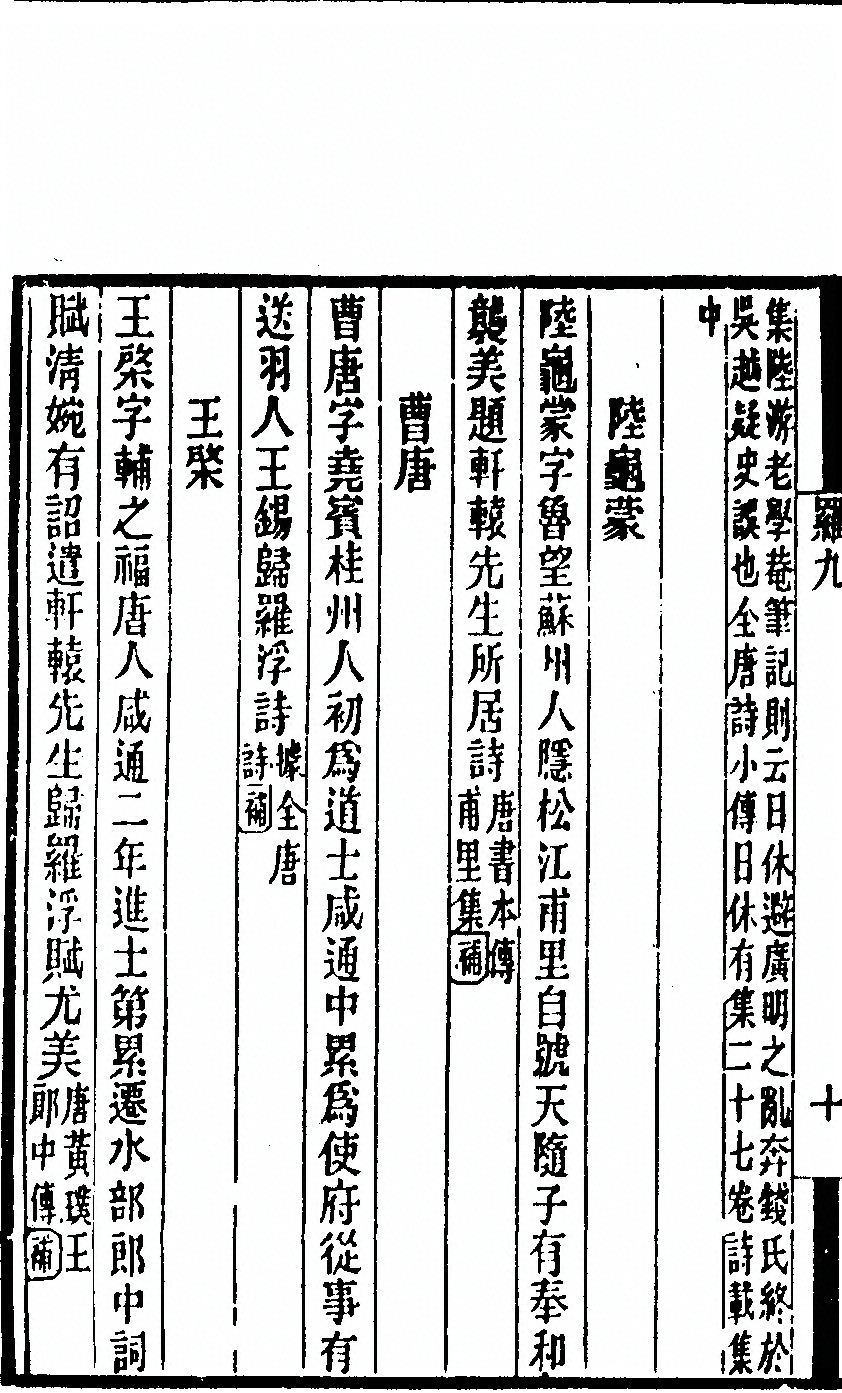 羅九
十
集陸游老學菴筆記則云日休避廣明之亂奔錢氏終於
吳越疑史誤也全唐詩小傳日休有集二十七卷詩載集
中
陸龜蒙
陸龜蒙字魯望蘇州人隱松江甫里自號天隨子有奉和
襲美題軒轅先生所居詩唐書本傳
甫里集補
曹唐
曹唐字堯賓桂州人初爲道士咸通中累爲使府從事有
送羽人王錫歸羅浮詩據全唐
詩補
王棨
王棨字輔之福唐人咸通二年進士第累遷水部郎中詞
賦清婉有詔遣軒轅先生歸羅浮賦尤美唐黃璞王
郎中傳補